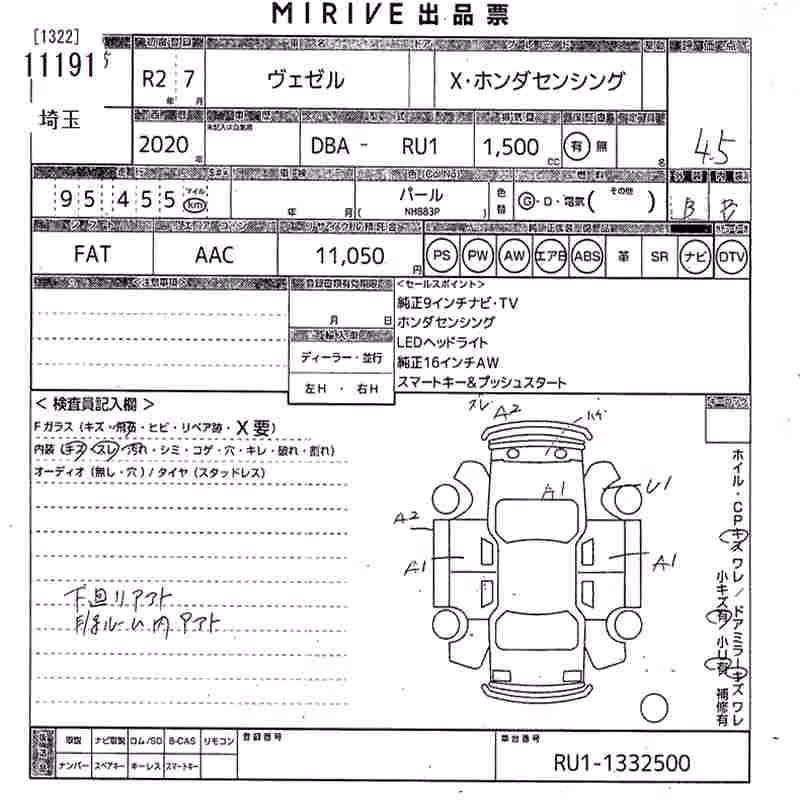 MIRIVE 出品票
[1322]
11191
埼玉
初度登録
R2 年 7 月
ヴェゼル
X・ホンダセンシング
評価点
4.5
2020 年
DBA - RU1
1,500 cc
有 無
名
95,455 マイル km
年 月
パール
NH883P
色替
G・D・電気( その他 )
外装 B
内装 B
シフト
FAT
エアコン
AAC
リサイクル預託金
11,050 円
PS PW AW エアB ABS 革 SR ナビ DTV
<注意事項>
登録書類有効期限
月 日
輸入車
ディーラー・並行
左H ・ 右H
<セールスポイント>
純正9インチナビ・TV
ホンダセンシング
LEDヘッドライト
純正16インチAW
スマートキー&プッシュスタート
< 検査員記入欄 >
Fガラス (キズ・飛石・ヒビ・リペア跡・X要)
内装 (キズ・スレ・汚れ・シミ・コゲ・穴・キレ・破れ・割れ)
オーディオ (無し・穴) / タイヤ (スタッドレス)
下回りアフト
A2
A1
U1
A2
A1
A1
ホイル・CPキズ ワレ / ドアミラーキズ ワレ
小キズ有 小U有 補修有
取説 ナビ取説 ロム/SD B-CAS リモコン
ナンバー スペアキー キーレス スマートキー
登録番号
車台番号
RU1-1332500